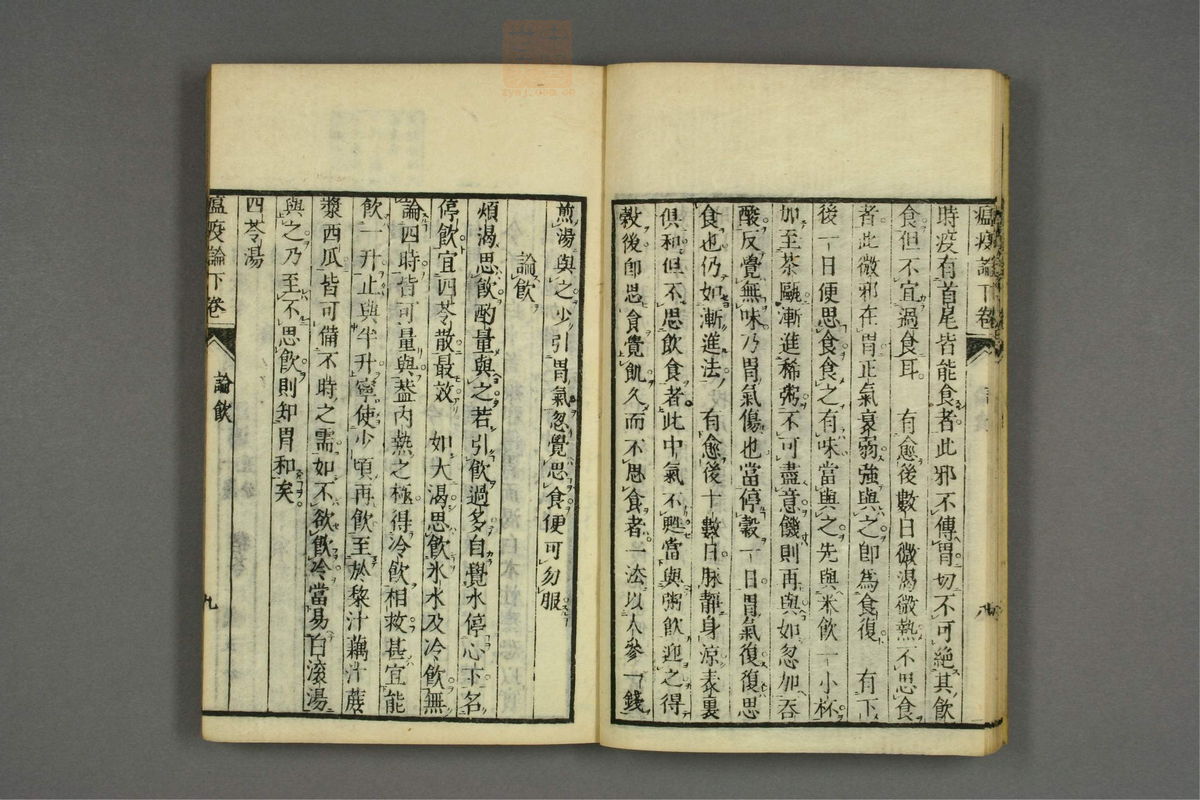 瘟疫論下卷
八
時疫有首尾皆能食者此邪不傳胃切不可絕其飲
食但不宜過食耳　有愈後數日微渴微熱不思食
者此微邪在胃正氣衰弱強與之即為食復　有下
後一日便思食食之有味當與之先與米飲一小杯
加至茶甌漸進稀粥不可盡意饑則再與如忽加吞
酸反覺無味乃胃氣傷也當停穀一日胃氣復復思
食也仍如漸進法　有愈後十數日脉靜身涼表裏
俱和但不思飲食者此中氣不甦當與粥飲迎之得
穀後即思食覺飢久而不思食者一法以人參一錢
煎湯與之少引胃氣忽覺思食便可勿服
論飲
煩渴思飲酌量與之若引飲過多自覺水停心下名
停飲宜四苓散最效　如大渴思飲冰水及冷飲無
論四時皆可量與蓋內熱之極得冷飲相救甚宜能
飲一升止與半升寧使少頃再飲至於黎汁藕汁蔗
漿西瓜皆可備不時之需如不欲飲冷當易白滾湯
與之乃至不思飲則知胃和矣
四苓湯
瘟疫論下卷
論飲
九
zysj.com.cn